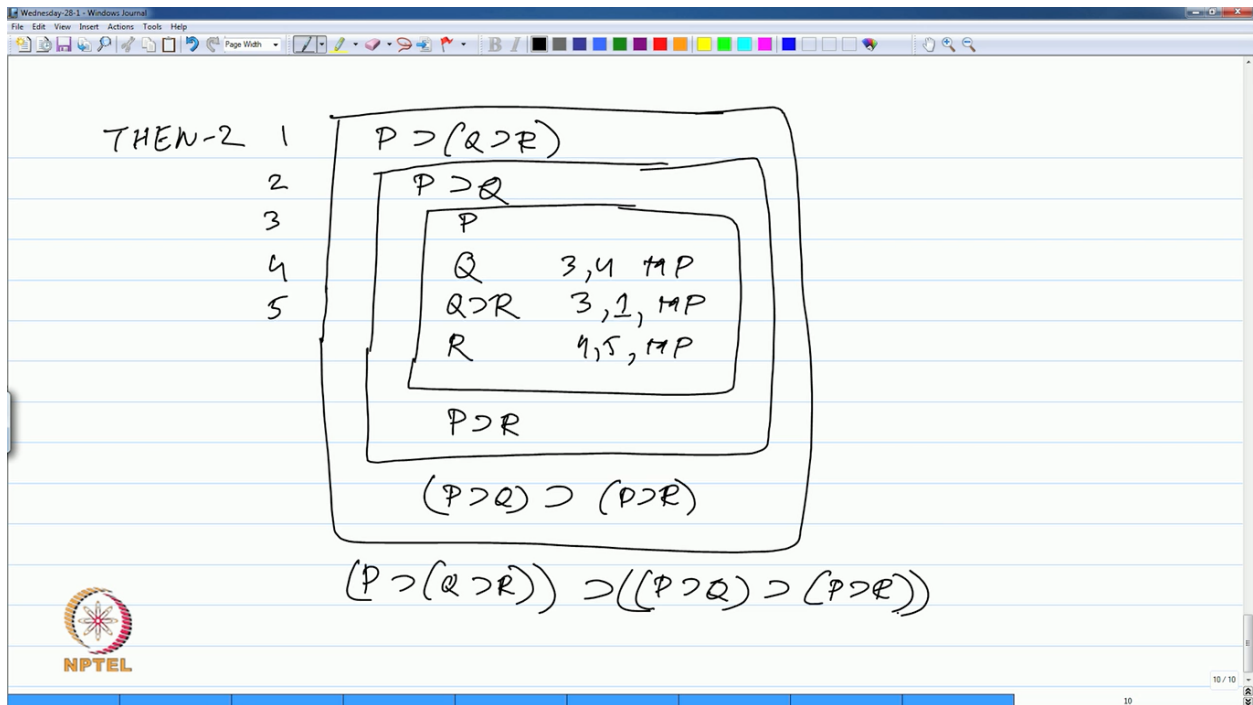 Wednesday-28-1 - Windows Journal
File Edit View Insert Actions Tools Help
Page Width B I
THEN-2 1 P ⊃ (Q ⊃ R)
2 P ⊃ Q
3 P
4 Q 3,4 MP
5 Q ⊃ R 3,1, MP
R 4,5, MP
P ⊃ R
(P ⊃ Q) ⊃ (P ⊃ R)
(P ⊃ (Q ⊃ R)) ⊃ ((P ⊃ Q) ⊃ (P ⊃ R))
NPTEL
10 / 10
10